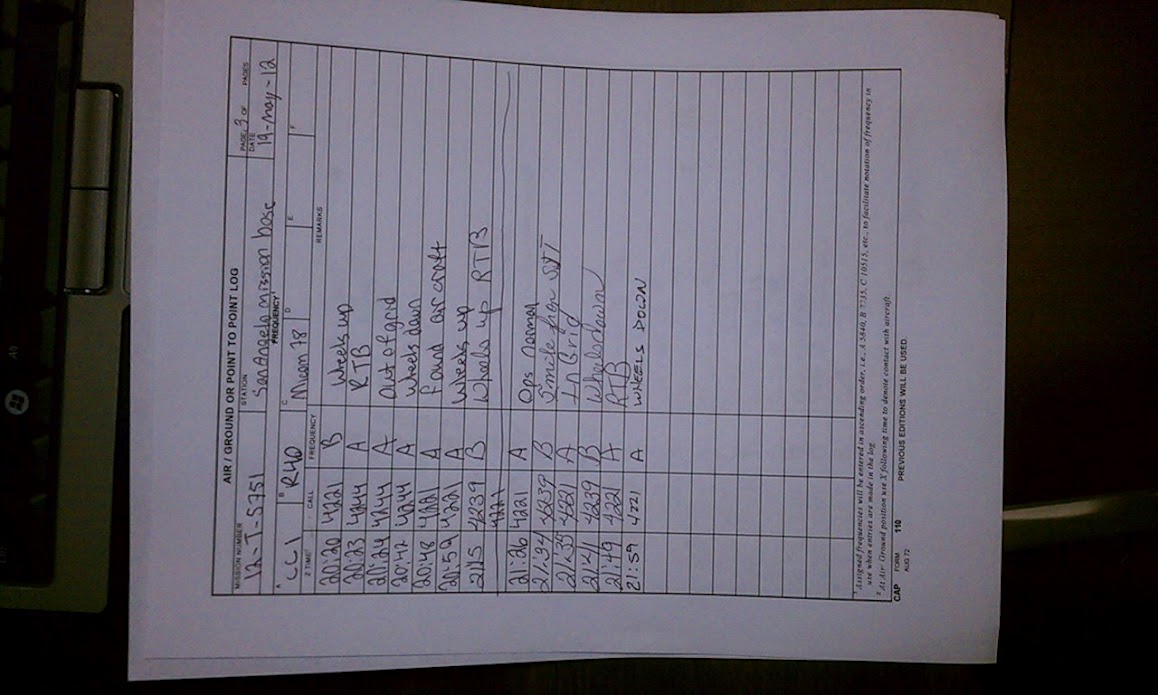 AIR / GROUND OR POINT TO POINT LOG
PAGE 3 OF PAGES
MISSION NUMBER STATION DATE
12-T-5751 San Angelo mission base 19-may-12
FREQUENCY¹
A CC1 B R40 C Micom 78 D E F
Z TIME² CALL FREQUENCY REMARKS
20:20 4221 B Wheels up
20:23 4244 A RTB
20:24 4244 A Out of grid
20:42 4244 A Wheels down
20:48 4221 A found aircraft
20:59 4221 A Wheels up
2115 4239 B Wheels up RTB
4221
21:26 4221 A Ops normal
21:34 4239 B
21:35 4221 A In Grid
21:41 4239 B Wheels down
21:49 4221 A RTB
21:59 4221 A WHEELS DOWN
¹ Assigned frequencies will be entered in ascending order, i.e., A 5840, B 7735, C 10515, etc., to facilitate notation of frequency in
use when entries are made in the log
² At Air Ground position use X following time to denote contact with aircraft.
CAP FORM AUG 72 110 PREVIOUS EDITIONS WILL BE USED.